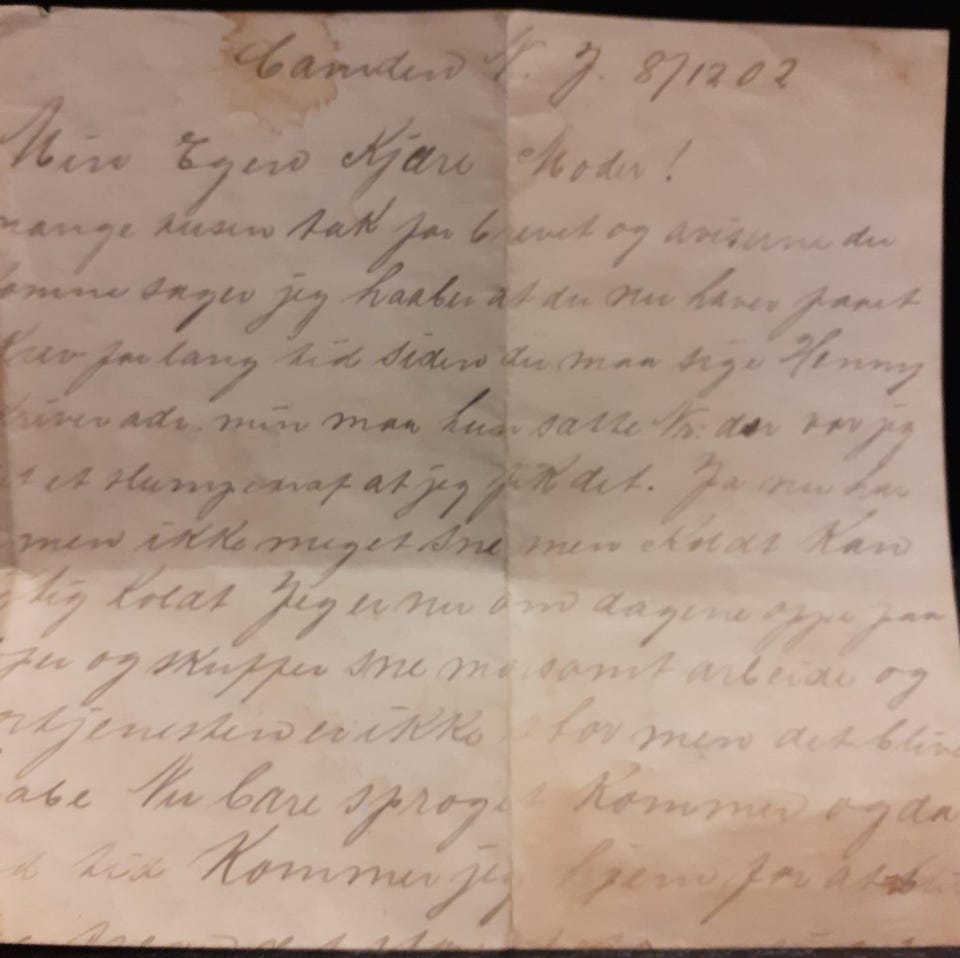 Camden N. J. 8/12 02
Min Egen Kjære Moder!
mange tusen tak for brevet og aviserne du
jeg haaber at du nu haver faaet
for lang tid siden du maa sige Henny
min maa hun sætte Nr. der var jeg
et at jeg fik det. Ja nu har
men ikke meget sne men koldt kan
koldt Jeg er nu om dagene oppe paa
og skuffer sne morsomt arbeide og
er ikke stor men det blive
Nu bare sproget kommer og da
tid kommer jeg hjem for at